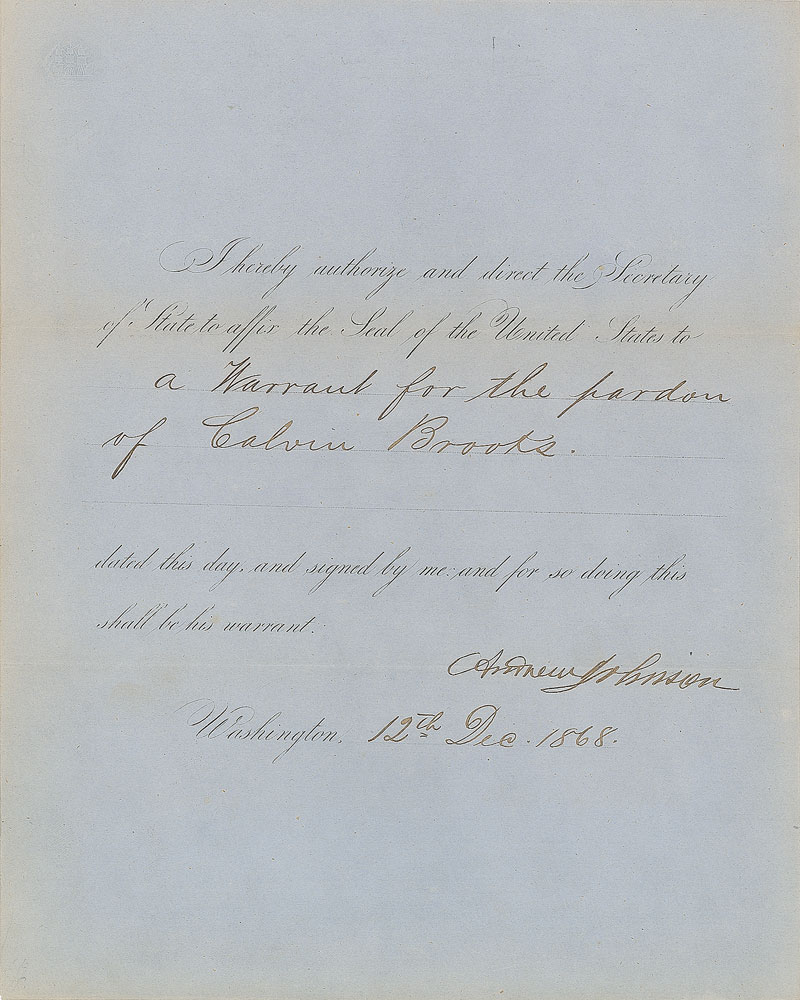 I hereby authorize and direct the Secretary
of State to affix the Seal of the United States to
a Warrant for the pardon
of Calvin Brooks.
dated this day, and signed by me: and for so doing this
shall be his warrant.
Andrew Johnson
Washington, 12th Dec. 1868.